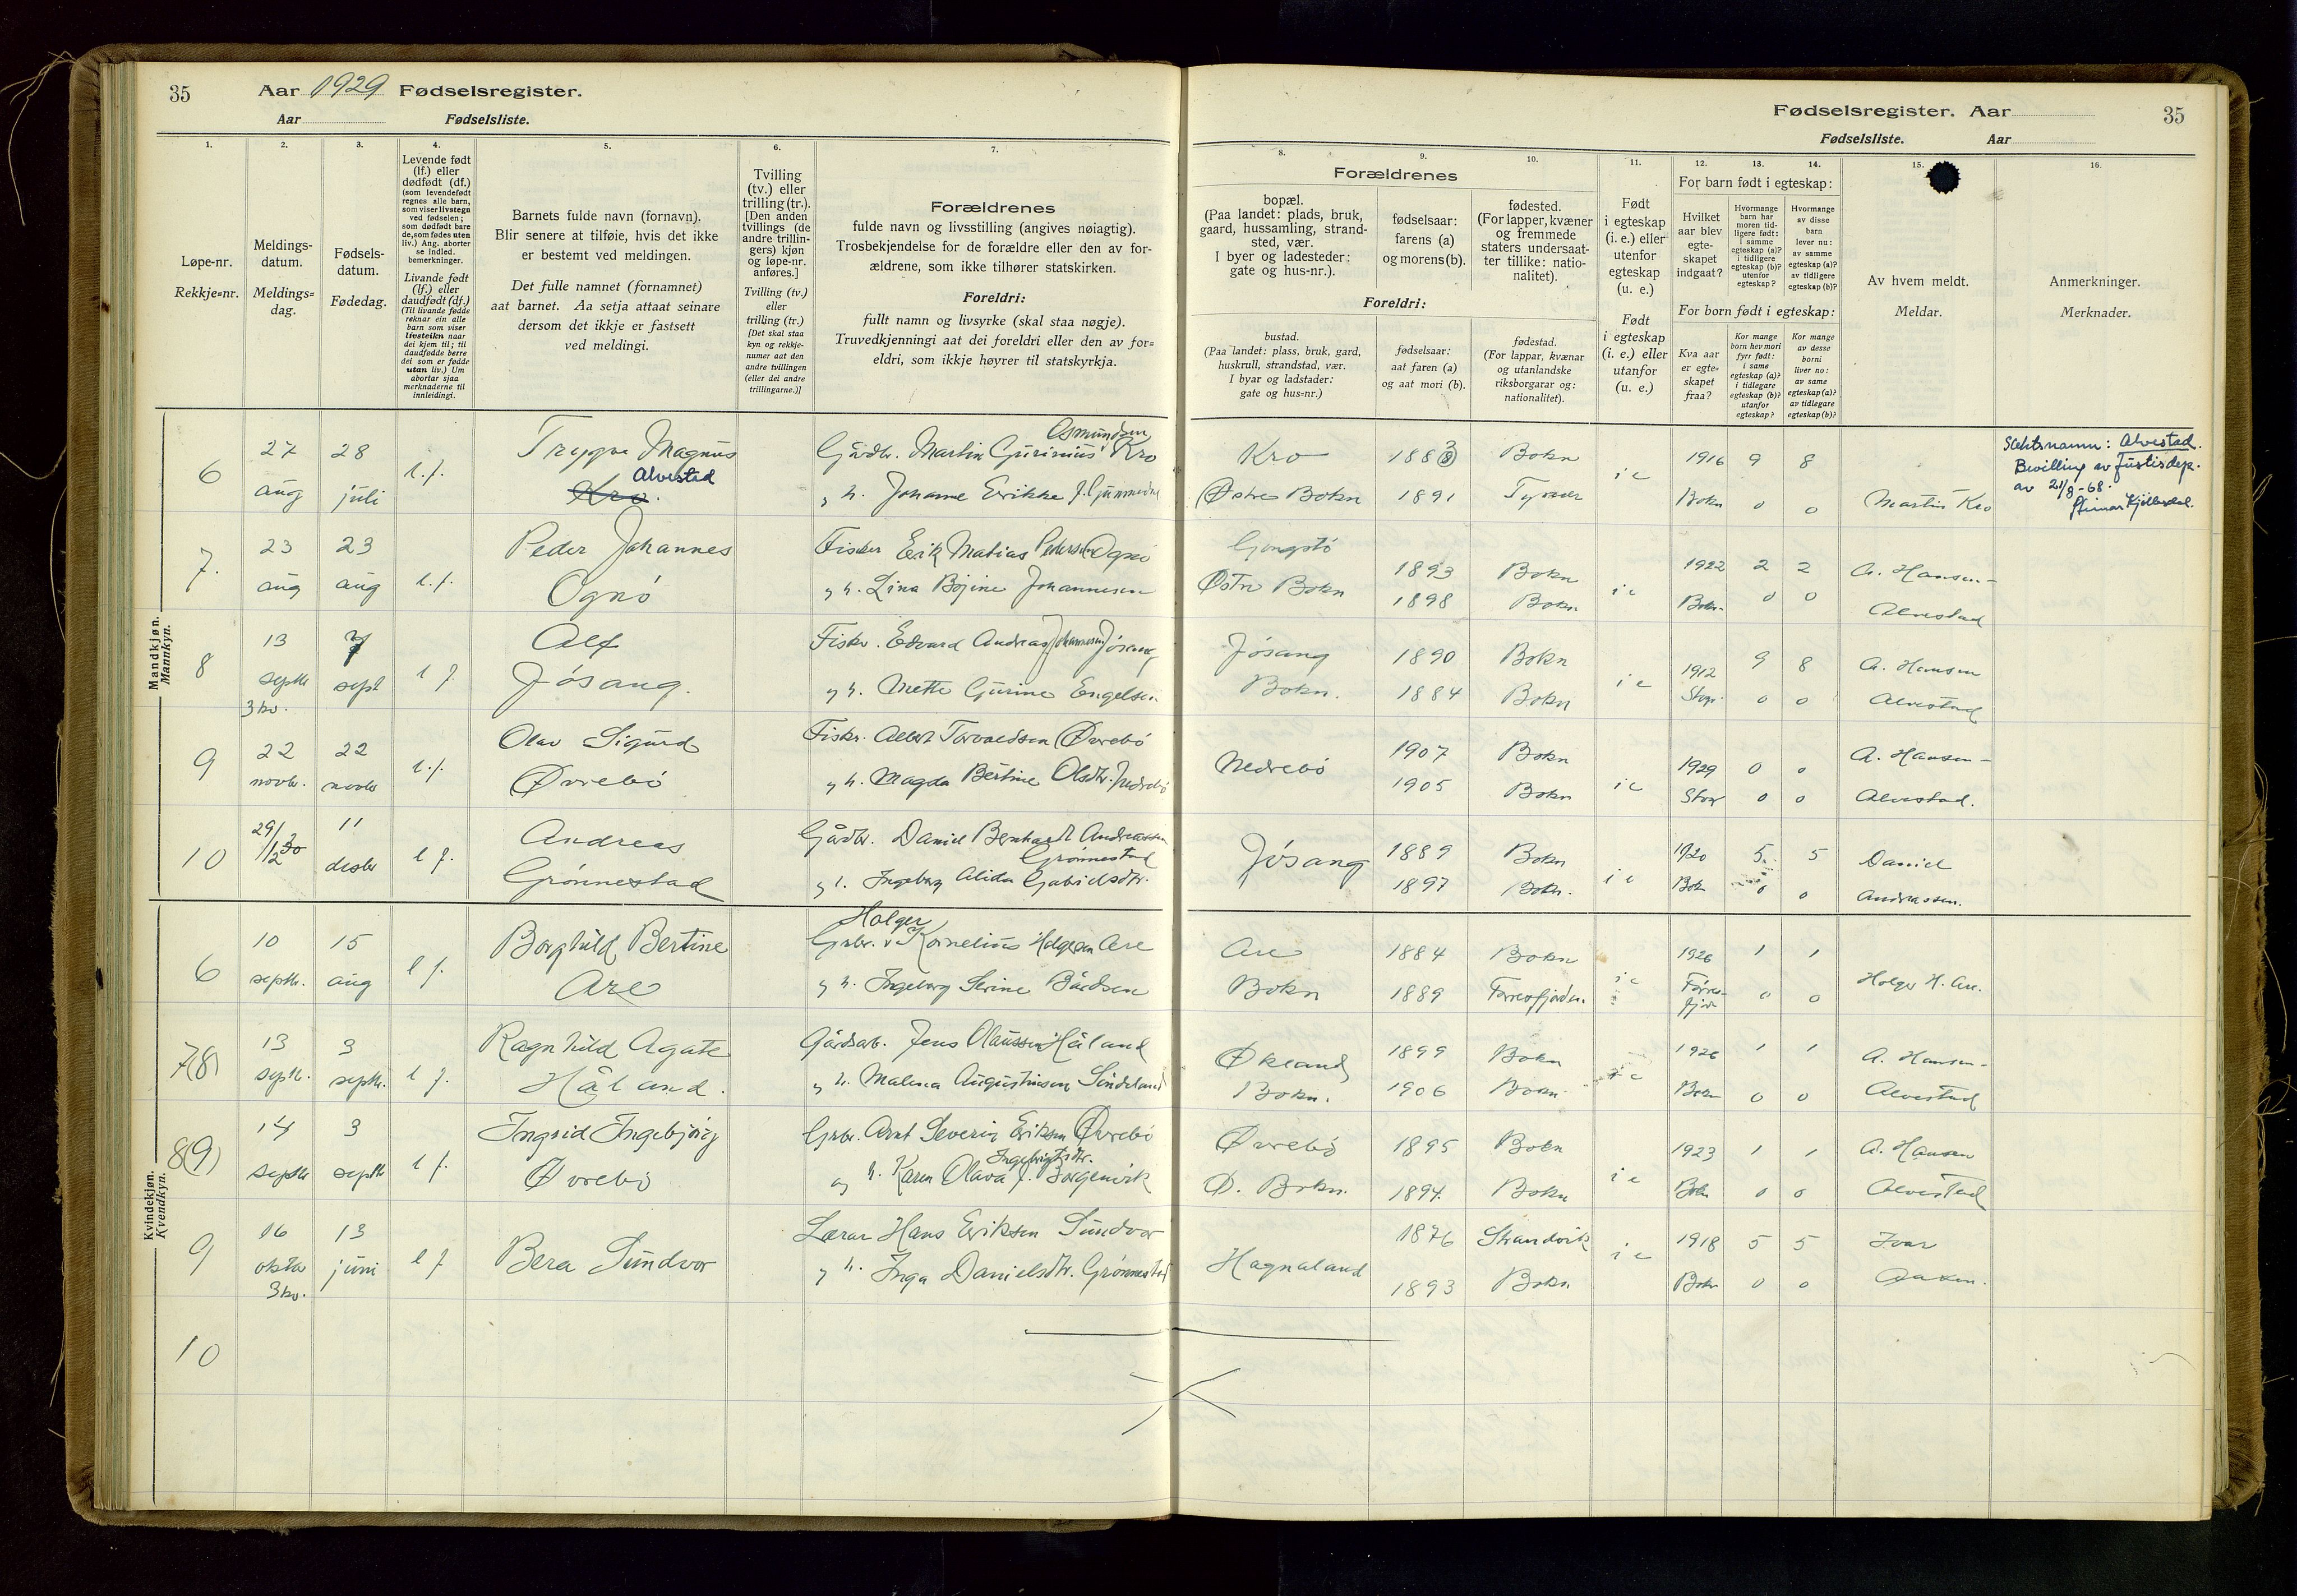 35
Aar 1929 Fødselsregister.
Aar Fødselsliste.
1.
2.
3.
4.
5.
6.
7.
Løpe-nr.
Rekkje=nr.
Meldings-
datum.
Meldings=
dag.
Fødsels-
datum.
Fødedag.
Levende født
(lf.) eller
dødfødt (df.)
(som levendefødt
regnes alle barn,
som viser livstegn
ved fødselen;
som dødfødt bare
de, som fødes uten
liv.) Ang. aborter
se indled.
bemerkninger.
Livande født
(lf.) eller
daudfødt (df.)
(Til livande fødde
reknar ein alle
barn som viser
livsteikn naar
dei kjem til; til
daudfødde berre
dei som er fødde
utan liv.) Um
abortar sjaa
merknaderne til
innleidingi.
Barnets fulde navn (fornavn).
Blir senere at tilføie, hvis det ikke
er bestemt ved meldingen.
Det fulle namnet (fornamnet)
aat barnet. Aa setja attaat seinare
dersom det ikkje er fastsett
ved meldingi.
Tvilling
(tv.) eller
trilling (tr.).
[Den anden
tvillings (de
andre trillin-
gers) kjøn
og løpe-nr.
anføres.]
Tvilling (tv.)
eller
trilling (tr.)
[Det skal staa
kyn og rekkje-
numer aat den
andre tvillingen
(eller dei andre
trillingarne.)]
Forældrenes
fulde navn og livsstilling (angives nøiagtig).
Trosbekjendelse for de forældre eller den av for-
ældrene, som ikke tilhører statskirken.
Foreldri:
fullt namn og livsyrke (skal staa nøgje).
Truvedkjenningi aat dei foreldri eller den av for=
eldri, som ikkje høyrer til statskyrkja.
Fødselsregister. Aar 35
Fødselsliste. Aar
8.
9.
10.
11.
12.
13.
14.
15.
16.
Forældrenes
bopæl.
(Paa landet: plads, bruk,
gaard, hussamling, strand-
sted, vær.
I byer og ladesteder:
gate og hus-nr.).
fødselsaar:
farens (a)
og morens (b).
fødested.
(For lapper, kvæner
og fremmede
staters undersaat-
ter tillike: natio-
nalitet).
Foreldri:
bustad.
(Paa landet: plass, bruk, gard,
huskrull, strandstad, vær.
I byar og ladstader:
gate og hus=nr.)
fødselsaar:
aat faren (a)
og aat mori (b).
fødestad.
(For lappar, kvænar
og utanlandske
riksborgarar og:
nationalitet).
Født
i egteskap
(i. e.) eller
utenfor
egteskap
(u. e.)
Født
i egteskap
(i. e.) eller
utanfor
(u. e.)
For barn født i egteskap:
Hvilket
aar blev
egte-
skapet
indgaat?
Hvormange
barn har
moren tid-
ligere født:
i samme
egteskap (a)?
i tidligere
egteskap (b)?
utenfor
egteskap?
Hvormange
av disse
barn
lever nu:
av samme
egteskap (a)?
av tidligere
egteskap (b)?
For born født i egteskap:
Kva aar
er egte=
skapet
fraa?
Kor mange
born hev mori
fyrr født:
i same
egteskap (a)?
i tidlegare
egteskap (b)?
utanfor
egteskap?
Kor mange
av desse
borni
liver no:
av same
egteskap (a)?
av tidlegare
egteskap (b)?
Av hvem meldt.
Meldar.
Anmerkninger.
Merknader.
Mandkjøn.
Mannkyn.
6 27 aug 28 juli l.f. Trygve Magnus Kro. Alvestad
Gårdbr. Martin Gurinius Osmundsen Kro
og h. Johanne Erikke f.
Kro Østre Bokn 1883 1891 Bokn Tysvær i e 1916 Bokn 9 0 8 0 Martin Kro
Slektsnamn: Alvestad.
Bevilling av Justisdep.
av 21/8-68.
7. 23 aug 23 aug l.f. Peder Johannes Ognø
Fisker Erik Matias Pedersen Ognø
og h. Lina Bojine Johannesen
Østre Bokn 1893 1898 Bokn Bokn i e 1922 Bokn 2 0 2 0 A. Hansen - Alvestad
8 13 septbr 3 kv. 7 sept l f. Alf Jøsang.
Fisker. Edvard Andreas Johannesen Jøsang
og h. Mette Gurine Engelsen
Jøsang Bokn. 1890 1884 Bokn Bokn i e 1912 9 0 8 0 A. Hansen Alvestad
9 22 novbr. 22 novbr l.f. Olav Sigurd Øvrebø
Fisker. Albert Torvaldsen Øvrebø
og h. Magda Bertine Olsdtr. Nedrebø
Nedrebø 1907 1905 Bokn Bokn i e 1929 0 0 0 0 A. Hansen - Alvestad.
10 29/12 30 11 desbr l f. Andreas Grønnestad
Gårdbr. Daniel Bernhardt Andreassen Grønnestad
og h. Ingeborg Alida Gabrielsdtr.
Jøsang 1889 1897 Bokn Bokn. i e 1920 Bokn 5 0 5 0 Daniel Andreassen.
Kvindekjøn.
Kvendkyn.
6 10 septbr. 15 aug l f. Borghild Bertine Are
Grbr. Holger Kornelius Holgersen Are
og h. Ingeborg Serine Bårdsen
Are Bokn 1884 1889 Bokn Førresfjorden. i e 1926 Førres-fjord 1 0 1 0 Holger H. Are.
7(8) 13 septbr. 3 septbr. l f. Ragnhild Agate Håland.
Gårdsarb. Jens Olaussen Håland
og h. Malena Augustinusen Sundeland
Økland Bokn. 1899 1906 Bokn Bokn i e 1926 Bokn 1 0 1 0 A. Hansen - Alvestad
8(9) 14 septbr 3 septbr l f. Ingrid Ingebjørg Øvrebø
Grbr. Arnt Severin Eriksen Øvrebø
og h. Karen Olava Ingebrigtsdtr. f. Borgenvik
Øvrebø Ø. Bokn. 1895 1894. Bokn Bokn i e 1923 Bokn 1 0 1 0 A. Hansen Alvestad
9 16 oktbr 3 kv. 13 juni l f Bera Sundvor
Lærar Hans Eriksen Sundvor
og h. Inga Danielsdtr. Grønnestad
Hagnaland 1876 1893 Strandvik Bokn i e 1918 Bokn 5 0 5 0 Ivar Aasen.
10